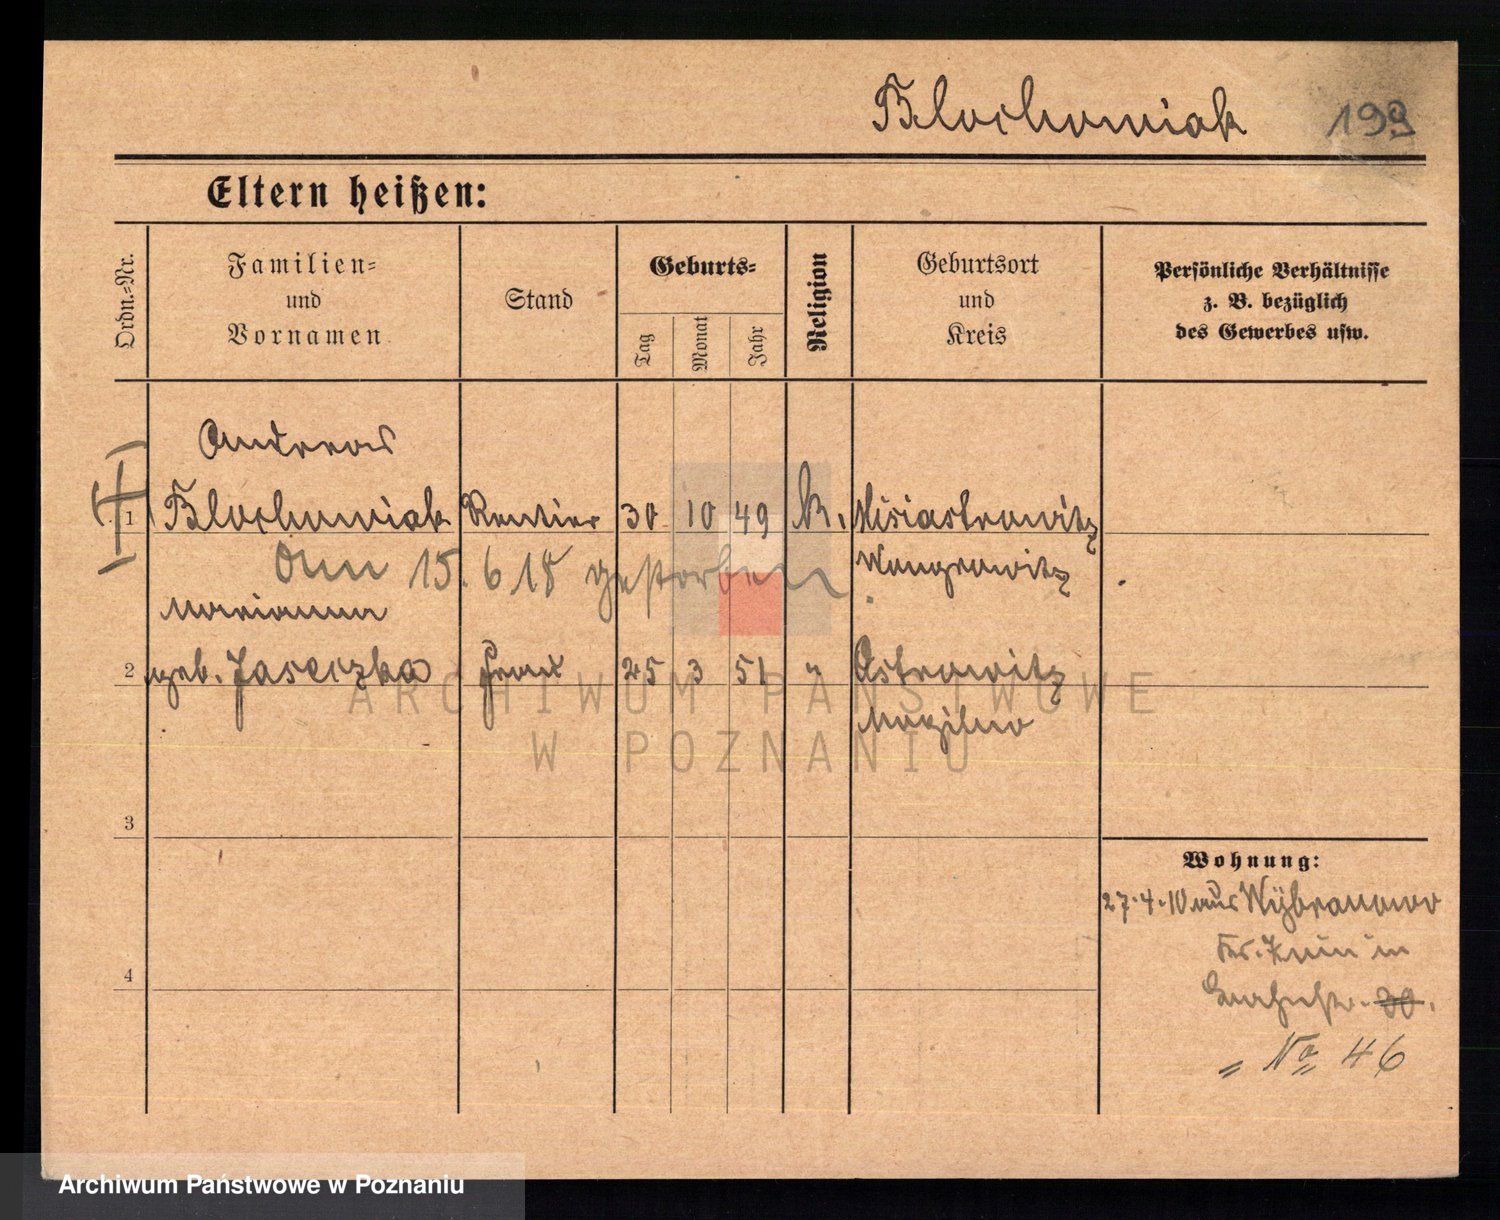 Blochowiak 199
Eltern heißen:
Ordn.-Nr.
Familien-
und
Vornamen
Stand
Geburts-
Tag
Monat
Jahr
Religion
Geburtsort
und
Kreis
Persönliche Verhältnisse
z. B. bezüglich
des Gewerbes usw.
Andreas
1 Blochowiak Rentier 30 10 49 k.
Wongrowitz
Am 15. 6 18 gestorben
Marianna
2 geb. Jaseczka Frau 25 3 51 " Ostrowitz
Mogilno
3
4
Wohnung:
27.4.10 aus Wybranowo
Kr. Znin in
30.
" No 46
ARCHIWUM PAŃSTWOWE
W POZNANIU
Archiwum Państwowe w Poznaniu